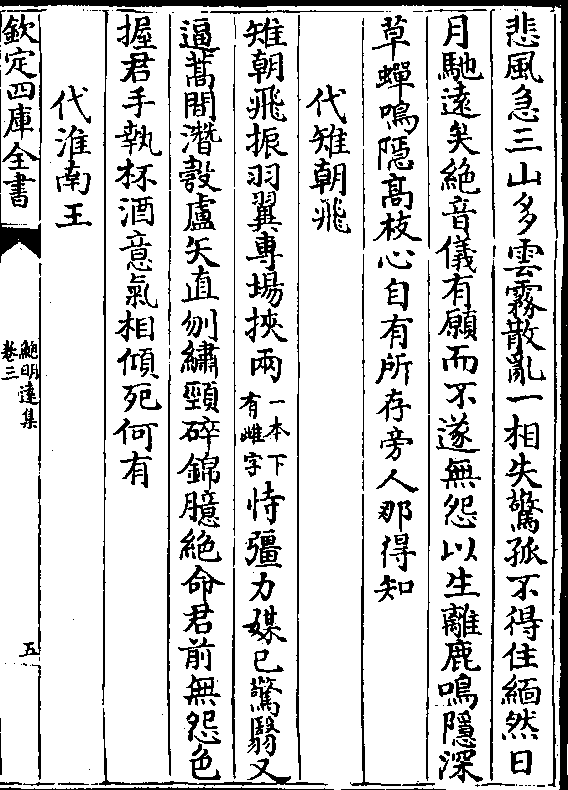 悲風急三山多雲霧散亂一相失驚孤不得住緬然日
月馳遠矣絶音儀有願而不遂無怨以生離鹿鳴隱深
草蟬鳴隱高枝心自有所存旁人那得知
代雉朝飛
雉朝飛振羽翼專場挾兩
一本下
有雌字
恃彊力媒已驚翳又
逼蒿間潛彀盧矢直刎繡頸碎錦臆絶命君前無怨色
握君手執杯酒意氣相傾死何有
代淮南王
欽定四庫全書
鮑明逺集
卷三
五